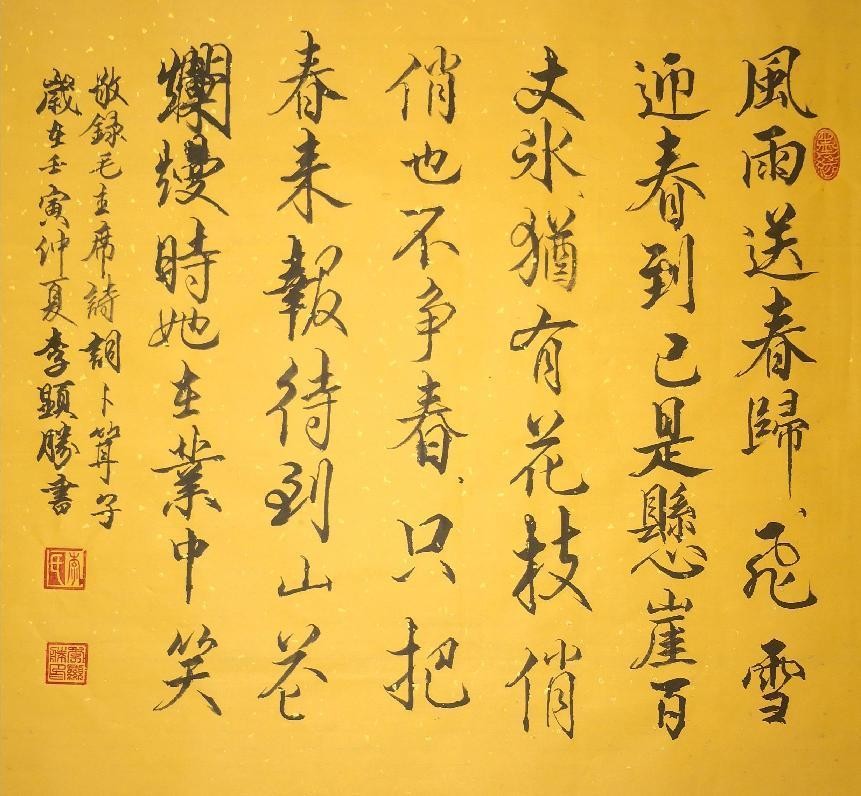 風雨送春歸、飛雪
迎春到已是懸崖百
丈冰、猶有花枝俏
俏也不争春、只把
春来報待到山花
爛熳時她在業中笑
敬録毛主席詩詞卜算子
歲在壬寅仲夏李顯勝書